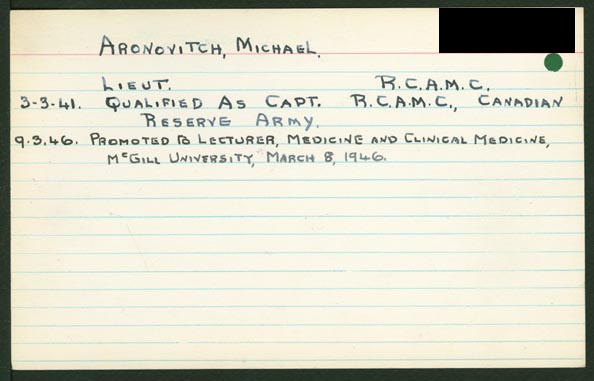 ARONOVITCH, MICHAEL.
LIEUT. R.C.A.M.C.
3-3-41. QUALIFIED AS CAPT. R.C.A.M.C., CANADIAN
RESERVE ARMY.
9.3.46. PROMOTED TO LECTURER, MEDICINE AND CLINICAL MEDICINE,
MCGILL UNIVERSITY, MARCH 8, 1946.